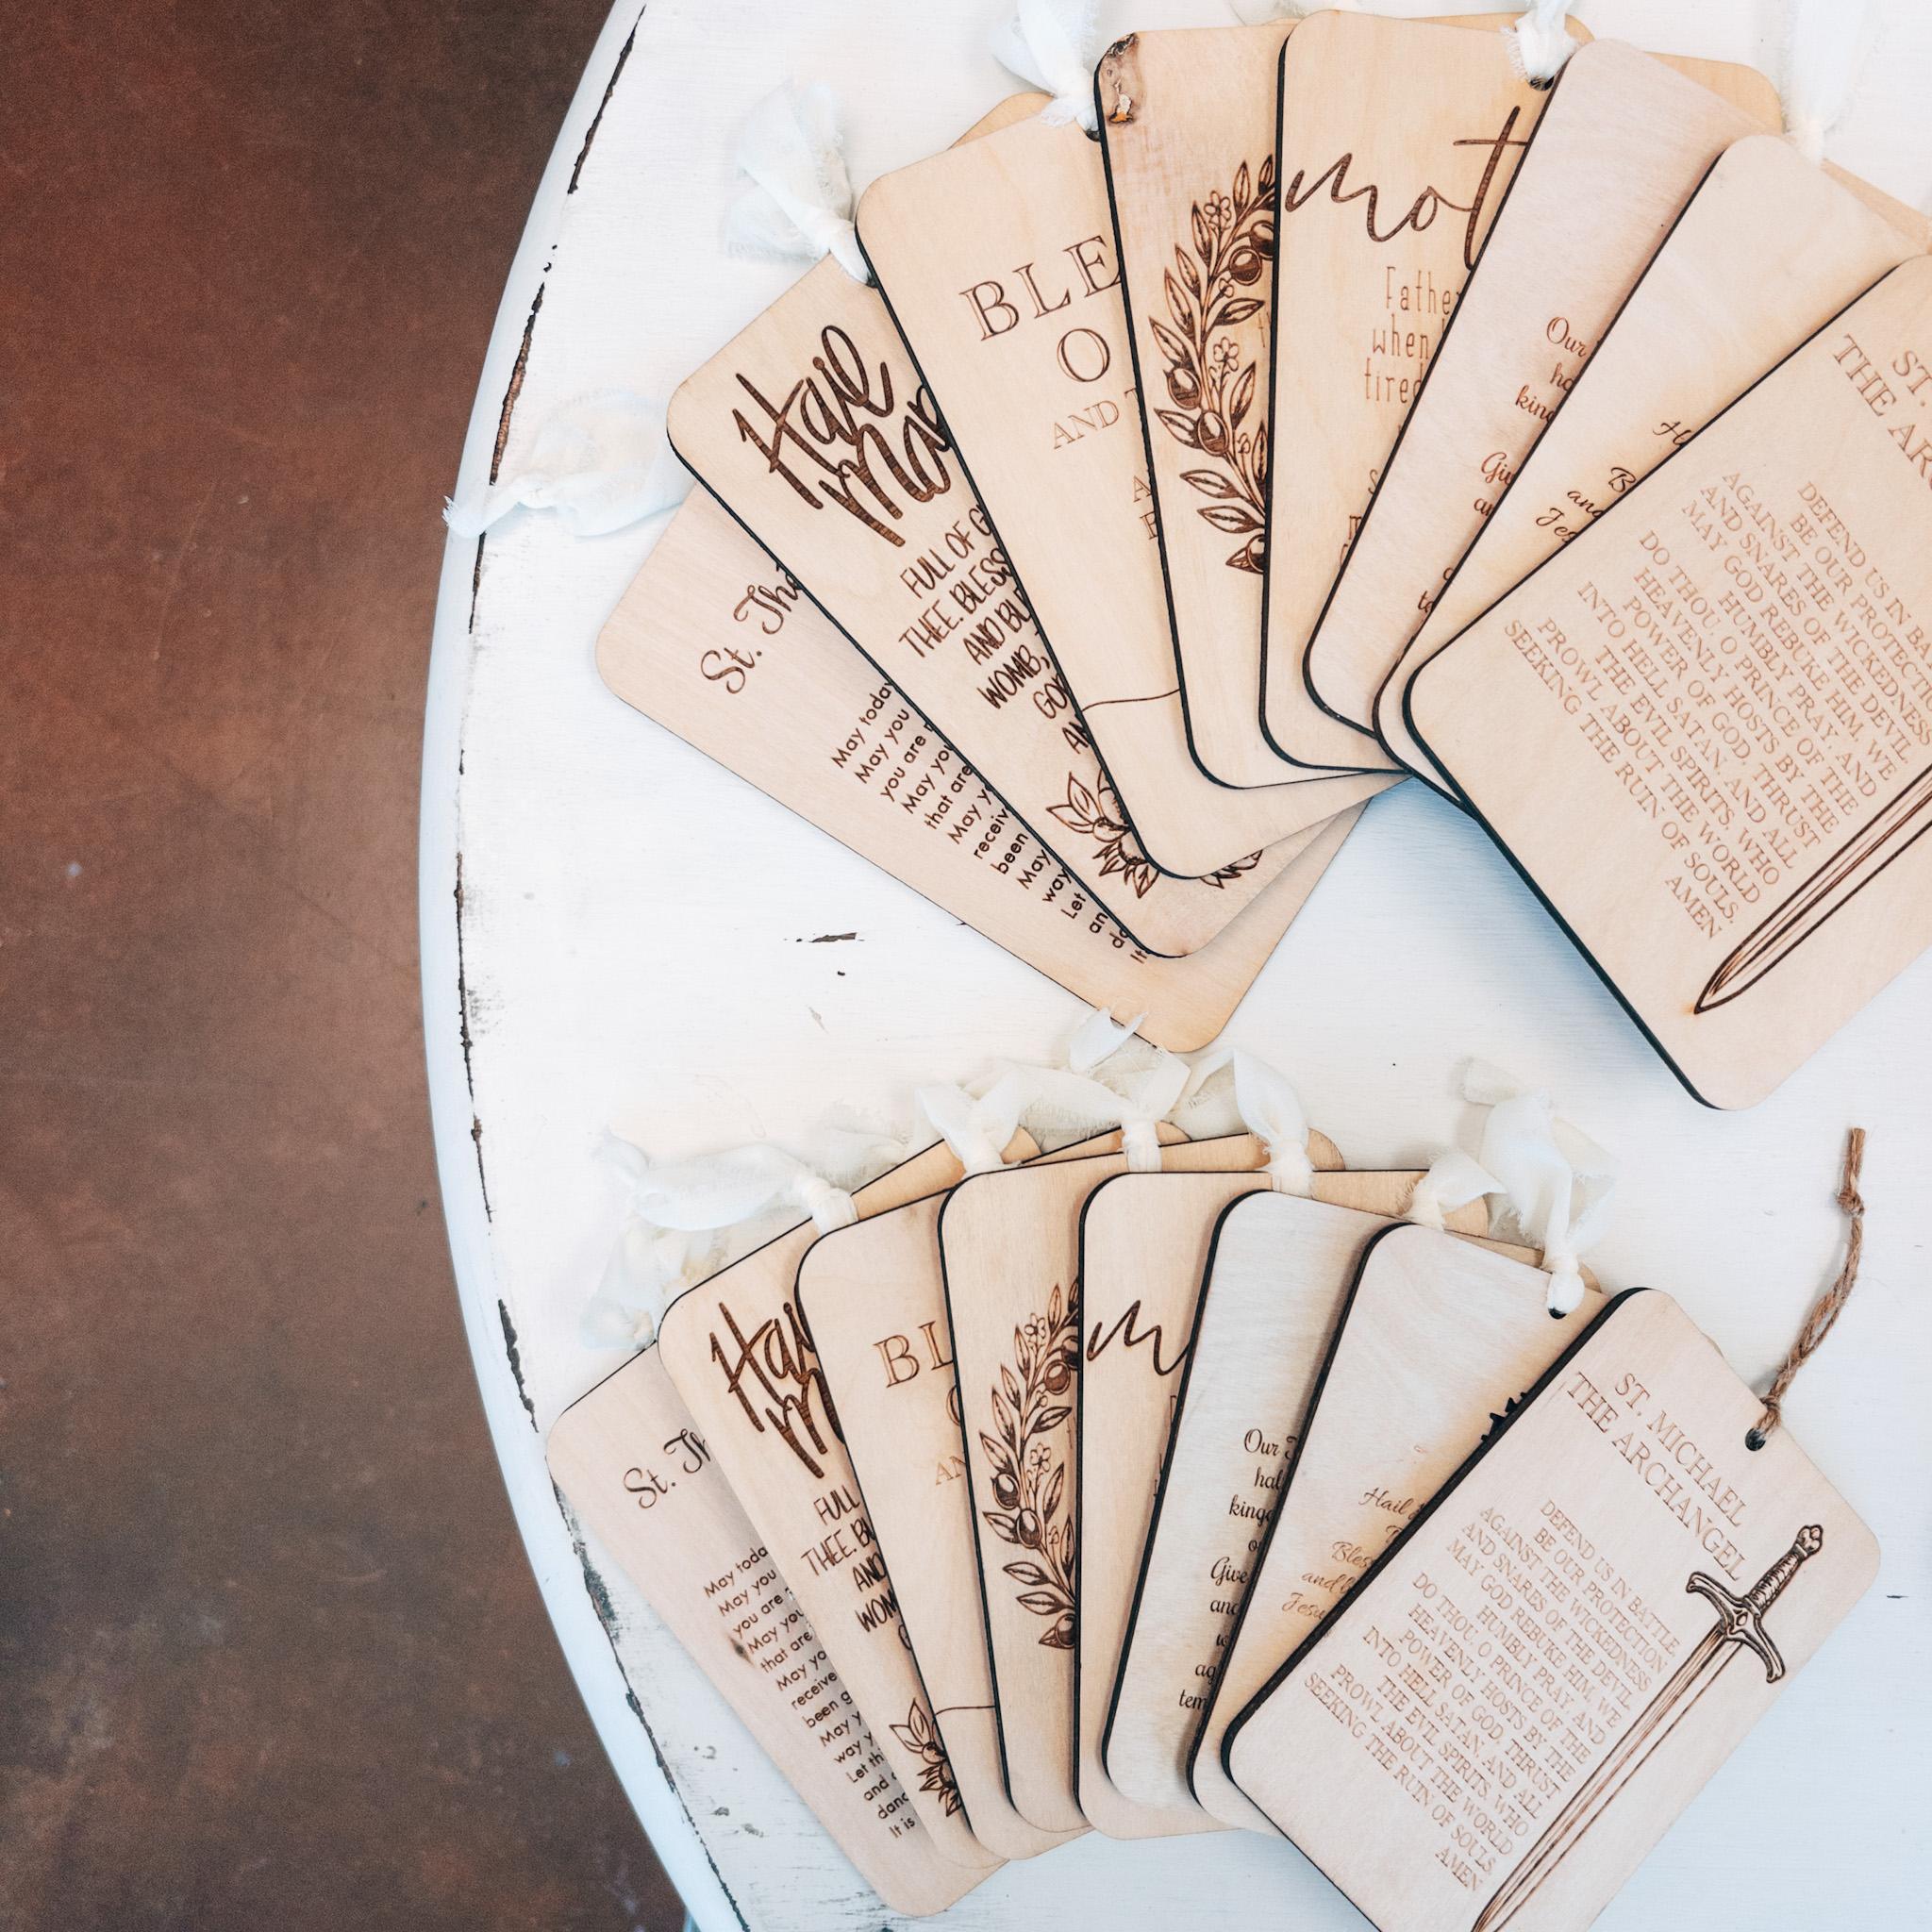 St.
May today
May you
you are
May you
that are
May
receiv
been
May
way
Let
an
da
It
Hail
Mar
FULL OF G
THEE. BLESS
AND BL
WOMB,
GO
A
BLE
O
AND
mot
Fathe
when
fired
Our
ha
king
Giv
an
to
H
B
and
Jes
ST.
THE AR
DEFEND US IN BA
BE OUR PROTECT
AGAINST THE WICKEDNESS
AND SNARES OF THE DEVIL
MAY GOD REBUKE HIM, WE
HUMBLY PRAY, AND
DO THOU, O PRINCE OF THE
HEAVENLY HOSTS BY THE
POWER OF GOD, THRUST
INTO HELL SATAN, AND ALL
THE EVIL SPIRITS, WHO
PROWL ABOUT THE WORLD
SEEKING THE RUIN OF SOULS.
AMEN
St. Th
May toda
May you
you are
May you
that are
May yo
receive
been g
May y
way y
Let th
and
danc
It is
Hai
M
FULL
THEE. BL
AND
WOM
BL
AN
m
Our
hal
kingd
Give
and
ag
tem
Hail
Bles
and b
Jesu
ST. MICHAEL
THE ARCHANGEL
DEFEND US IN BATTLE
BE OUR PROTECTION
AGAINST THE WICKEDNESS
AND SNARES OF THE DEVIL
MAY GOD REBUKE HIM, WE
HUMBLY PRAY, AND
DO THOU, O PRINCE OF THE
HEAVENLY HOSTS BY THE
POWER OF GOD, THRUST
INTO HELL SATAN, AND ALL
THE EVIL SPIRITS, WHO
PROWL ABOUT THE WORLD
SEEKING THE RUIN OF SOULS.
AMEN